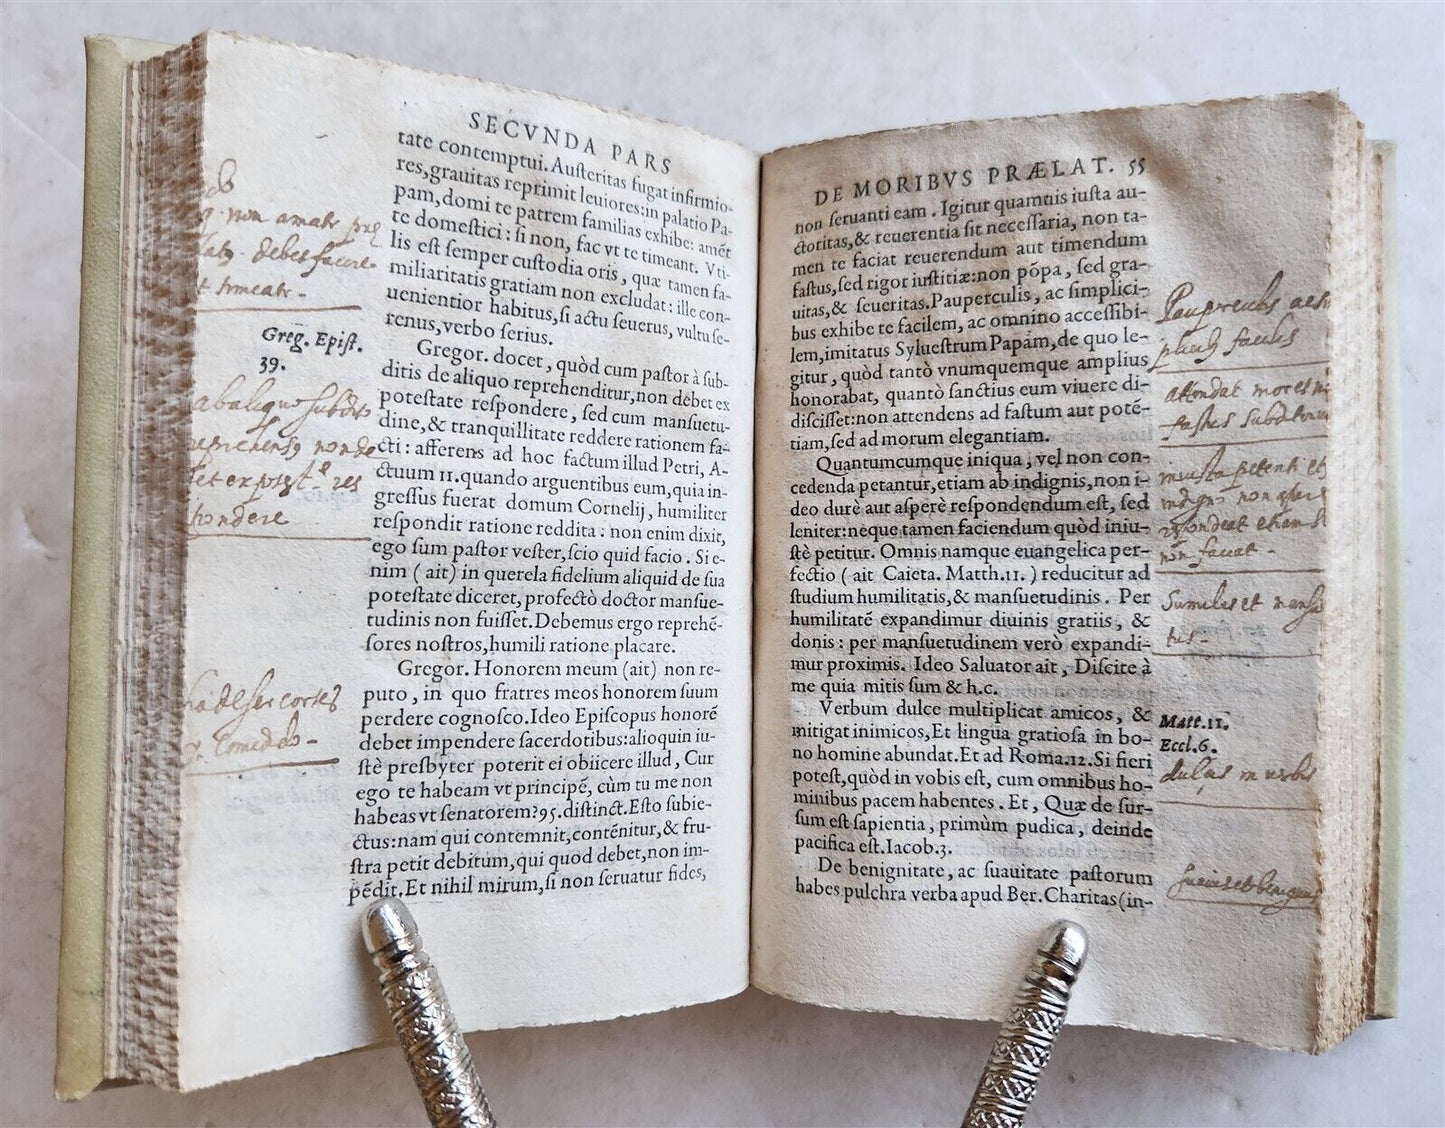 SECVNDA PARS
tate contemptui. Austeritas fugat infirmio-
res, grauitas reprimit leuiores: in palatio Pa-
pam, domi te patrem familias exhibe: amẽt
te domestici: si non, fac vt te timeant. Vti-
lis est semper custodia oris, quæ tamen fa-
miliaritatis gratiam non excludat: ille con-
uenientior habitus, si actu seuerus, vultu se-
renus, verbo serius.
Gregor. docet, quòd cum pastor à sub-
ditis de aliquo reprehenditur, non debet ex
potestate respondere, sed cum mansuetu-
dine, & tranquillitate reddere rationem fa-
cti: afferens ad hoc factum illud Petri, A-
ctuum 11. quando arguentibus eum, quia in-
gressus fuerat domum Cornelij, humiliter
respondit ratione reddita: non enim dixit,
ego sum pastor vester, scio quid facio. Si e-
nim (ait) in querela fidelium aliquid de sua
potestate diceret, profectò doctor mansue-
tudinis non fuisset. Debemus ergo reprehẽ-
sores nostros, humili ratione placare.
Gregor. Honorem meum (ait) non re-
puto, in quo fratres meos honorem suum
perdere cognosco. Ideo Episcopus honorẽ
debet impendere sacerdotibus: alioquin iu-
stè presbyter poterit ei obiicere illud, Cur
ego te habeam vt principẽ, cùm tu me non
habeas vt senatorem? 95. distinct. Esto subie-
ctus: nam qui contemnit, contẽnitur, & fru-
stra petit debitum, qui quod debet, non im-
pẽdit. Et nihil mirum, si non seruatur fides,
non amatr
debet facere
t timeatr.
Greg. Epist.
39.
ab aliquo subdito
non de
res
pondere
DE MORIBVS PRÆLAT. 55
non seruanti eam. Igitur quamuis iusta au-
ctoritas, & reuerentia sit necessaria, non ta-
men te faciat reuerendum aut timendum
fastus, sed rigor iustitiæ: non põpa, sed gra-
uitas, & seueritas. Pauperculis, ac simplici-
bus exhibe te facilem, ac omnino accessibi-
lem, imitatus Syluestrum Papam, de quo le-
gitur, quòd tantò vnumquemque amplius
honorabat, quantò sanctius eum viuere di-
discisset: non attendens ad fastum aut potẽ-
tiam, sed ad morum elegantiam.
Quantumcumque iniqua, vel non con-
cedenda petantur, etiam ab indignis, non i-
deo durè aut asperè respondendum est, sed
leniter: neque tamen faciendum quòd iniu-
stè petitur. Omnis namque euangelica per-
fectio (ait Caieta. Matth. 11.) reducitur ad
studium humilitatis, & mansuetudinis. Per
humilitatẽ expandimur diuinis gratiis, &
donis: per mansuetudinem verò expandi-
mur proximis. Ideo Saluator ait, Discite à
me quia mitis sum & h.c.
Verbum dulce multiplicat amicos, &
mitigat inimicos, Et lingua gratiosa in bo-
no homine abundat. Et ad Roma. 12. Si fieri
potest, quòd in vobis est, cum omnibus ho-
minibus pacem habentes. Et, Quæ de sur-
sum est sapientia, primùm pudica, deinde
pacifica est. Iacob. 3.
De benignitate, ac suauitate pastorum
habes pulchra verba apud Ber. Charitas (in-
facilis
attendat mores
iniusta petenti et
indigno non
respondeat etiam
non faciat.
Matt. 11.
Eccl. 6.
dulcis in verbis